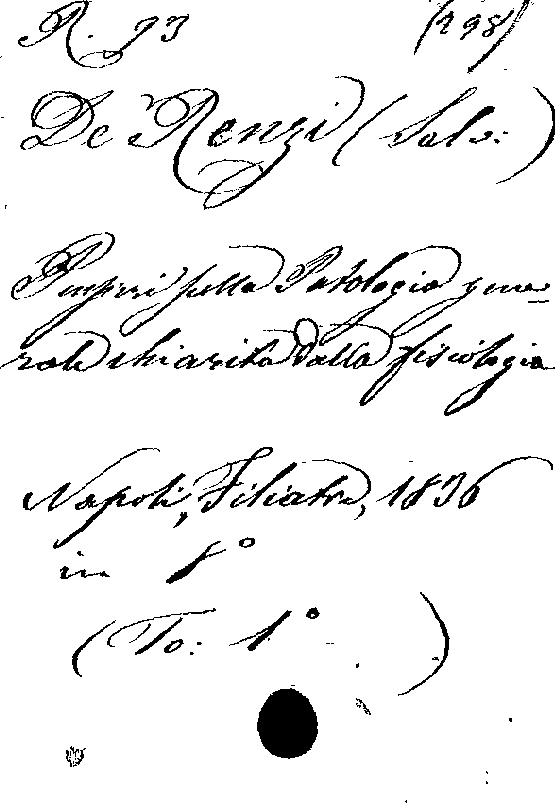 R. 93 (298)
De Renzi (Salv:)
Pensieri sulla Patologia gene-
rale chiarita dalla fisiologia
Napoli, Filiatre, 1836
in 8°
(To: 1° )